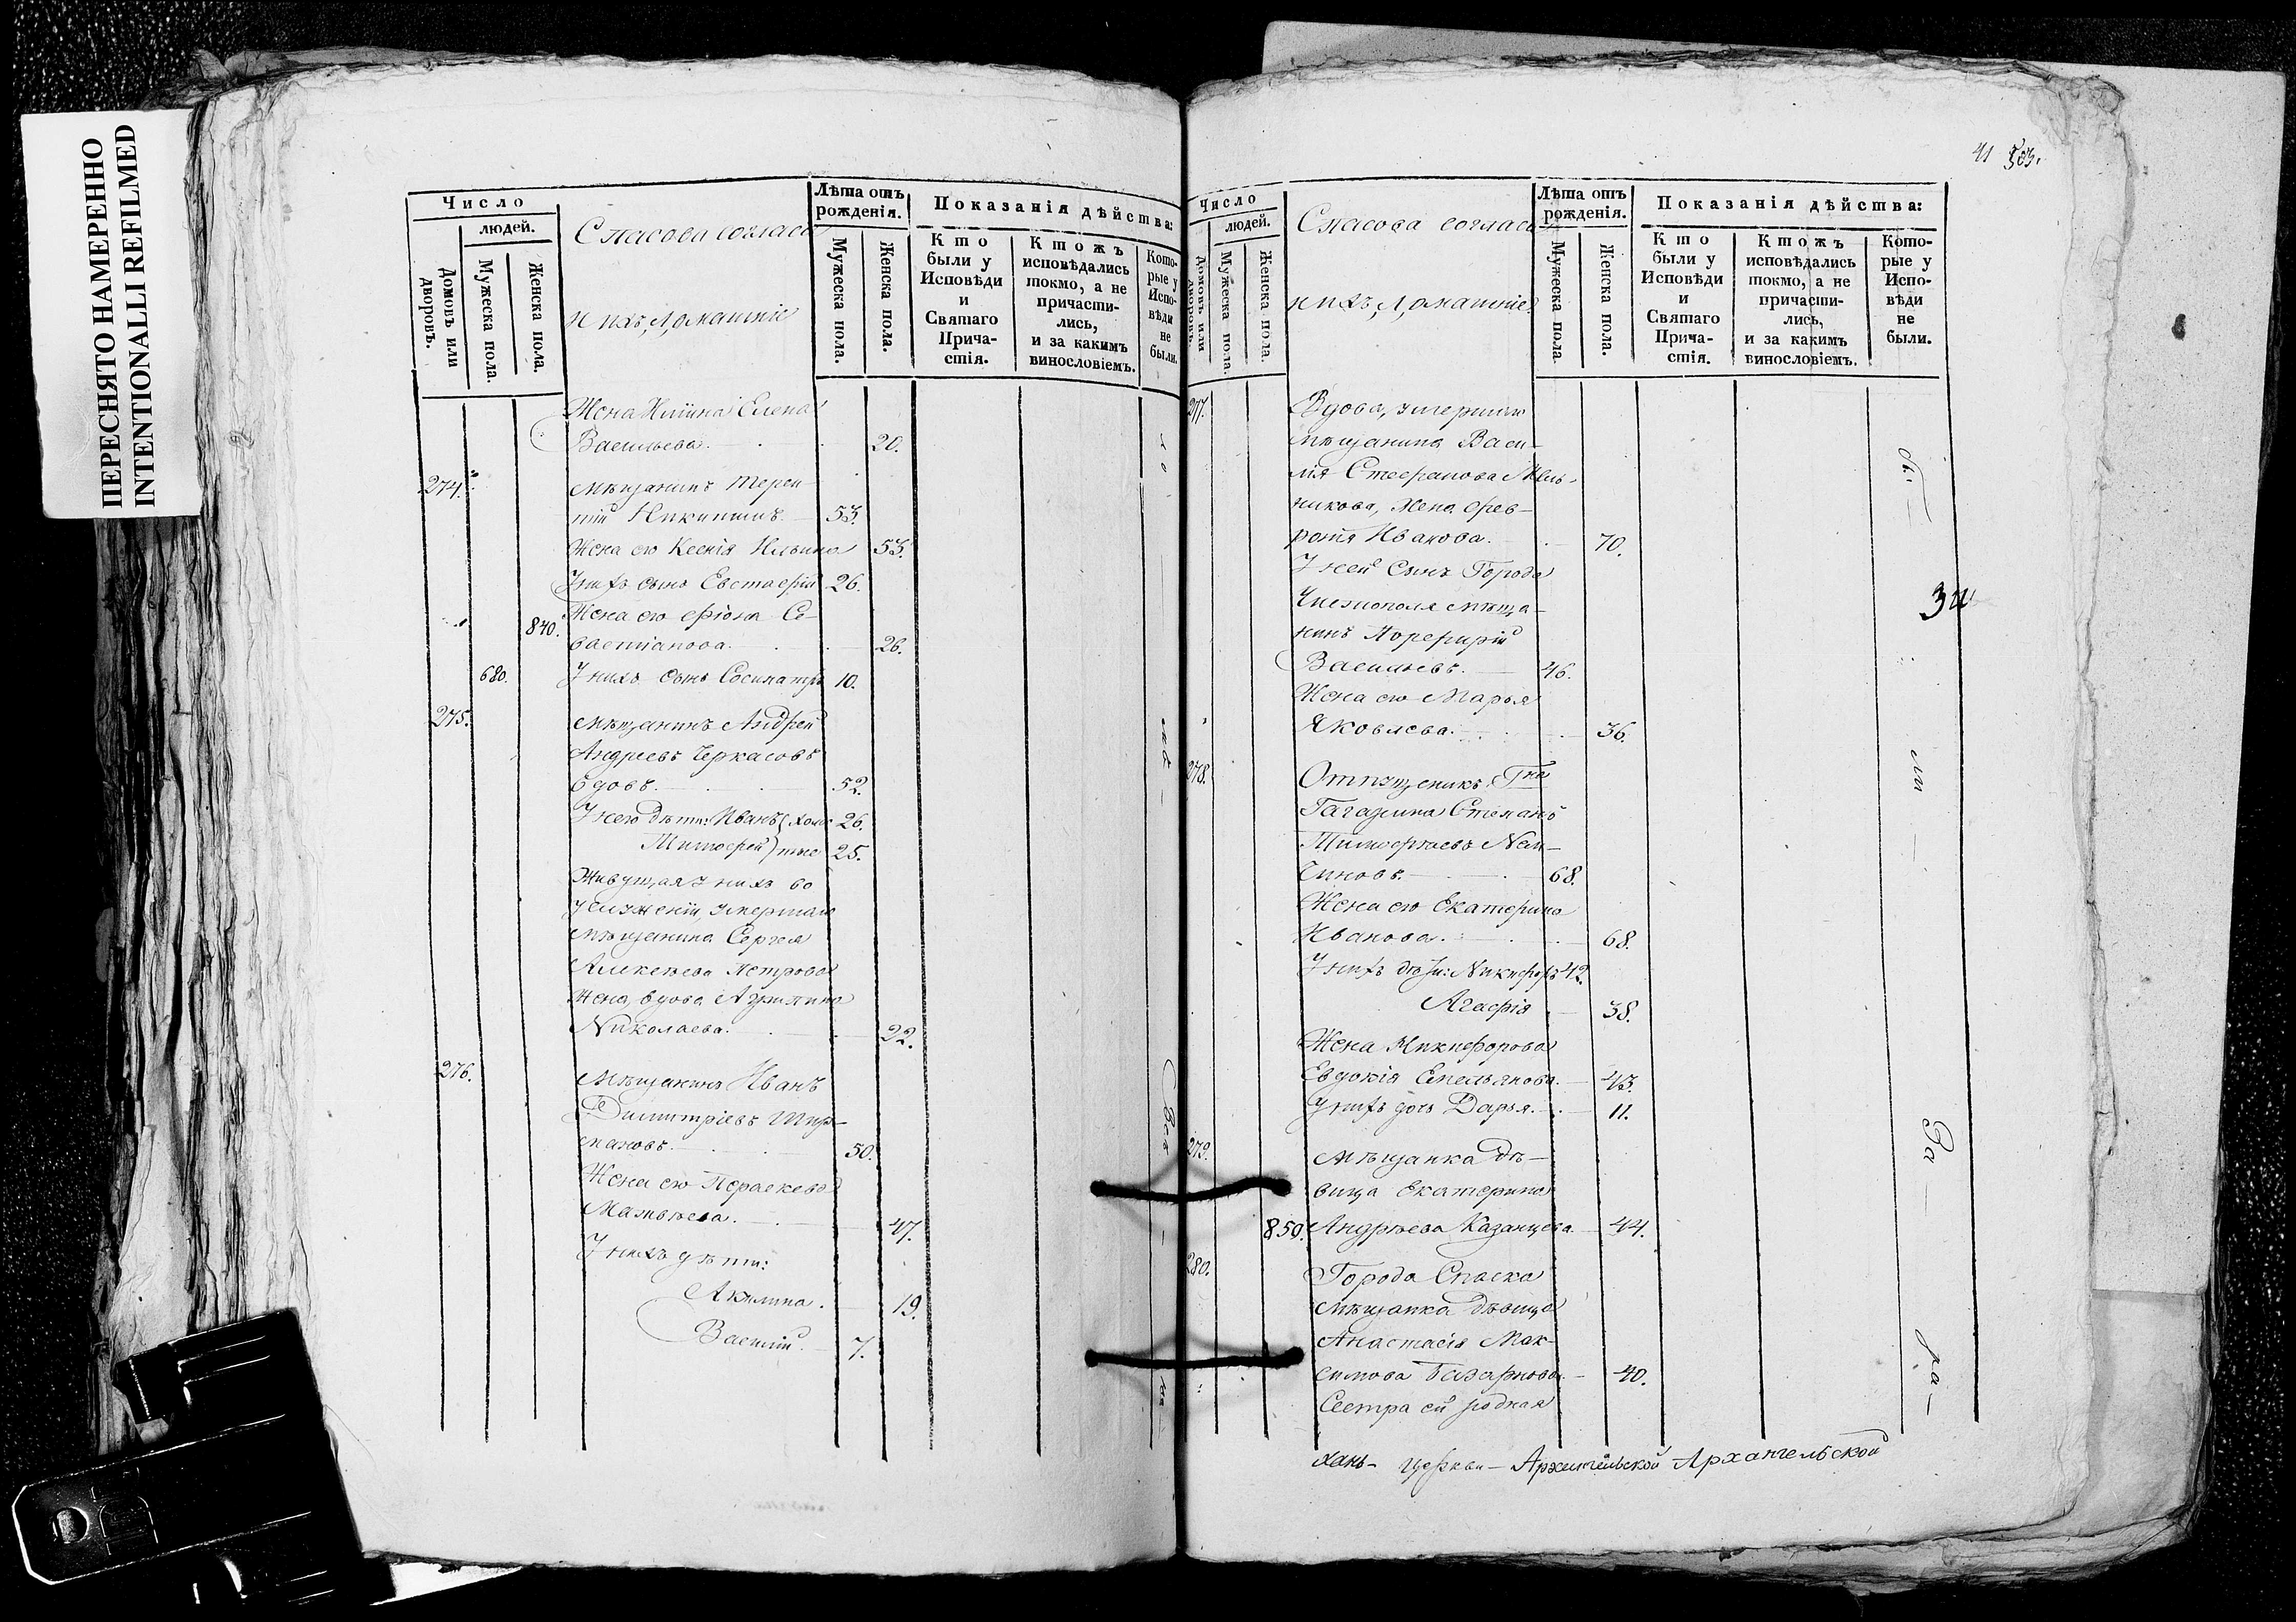 ПЕРЕСНЯТО НАМЕРЕННО
INTENTIONALLI REFILMED
Число
людей.
Домовъ или дворовъ.
Мужеска пола.
Женска пола.
Спасова соглас
и ихъ домашніе
Лѣта отъ рожденія.
Мужеска пола.
Женска пола.
Показанія дѣйства:
Кто были у Исповѣди и Святаго Причастія.
Ктожъ исповѣдались токмо, а не причастились, и за какимъ винословіемъ.
Которые у Исповѣди не были.
Жена Иліина Елена
Васильева. 20.
274. Мѣщанинъ Терен-
тій Никитинъ 53.
Жена его Ксенія Ильина 53.
У нихъ сынъ Евстафій 26.
840. Жена его Фіона Се-
вастіанова. 26.
680. У нихъ сынъ Сосипатръ 10.
275. Мѣщанинъ Андрей
Андреевъ Черкасовъ
вдовъ. 52.
У него дѣти: Иванъ холос 26.
Тимофей тые 25.
Живущая у нихъ во
услуженіи умершаго
мѣщанина Сергея
Алексѣева Петрова
жена, вдова Акилина
Николаева. 22.
276. Мѣщанинъ Иванъ
Димитріевъ Шир-
маковъ. 50.
Жена его Параскева
Матвѣева. 47.
У нихъ дѣти:
Акилина. 19.
Василій. 7.
41 503.
Число
людей.
Домовъ или дворовъ.
Мужеска пола.
Женска пола.
Спасова соглас
и ихъ домашніе
Лѣта отъ рожденія.
Мужеска пола.
Женска пола.
Показанія дѣйства:
Кто были у Исповѣди и Святаго Причастія.
Ктожъ исповѣдались токмо, а не причастились, и за какимъ винословіемъ.
Которые у Исповѣди не были.
277. Вдова, умершаго
мѣщанина Васи-
лія Стефанова Мель-
никова, жена Фев-
ронія Иванова. 70.
У ней сынъ Города
Чистополя мѣща-
нинъ Порфирій
Васильевъ. 46.
Жена его Марья
Яковлева. 36.
278. Отпущеникъ Гна
Гагарина Степанъ
Тимофеевъ Нем-
чиновъ. 68.
Жена его Екатерина
Иванова. 68.
У нихъ дѣти: Никифоръ 42.
Агафія 38.
Жена Никифорова
Евдокія Емельянова. 43.
У нихъ дочь Дарья. 11.
279. Мѣщанка дѣ-
вица Екатерина
850. Андрѣева Казанцева 44.
280. Города Спаска
мѣщанка дѣвица
Анастасія Мак-
симова Базарнова 40.
Сестра ей родная
хань- церкви- Архангельской Архангельской